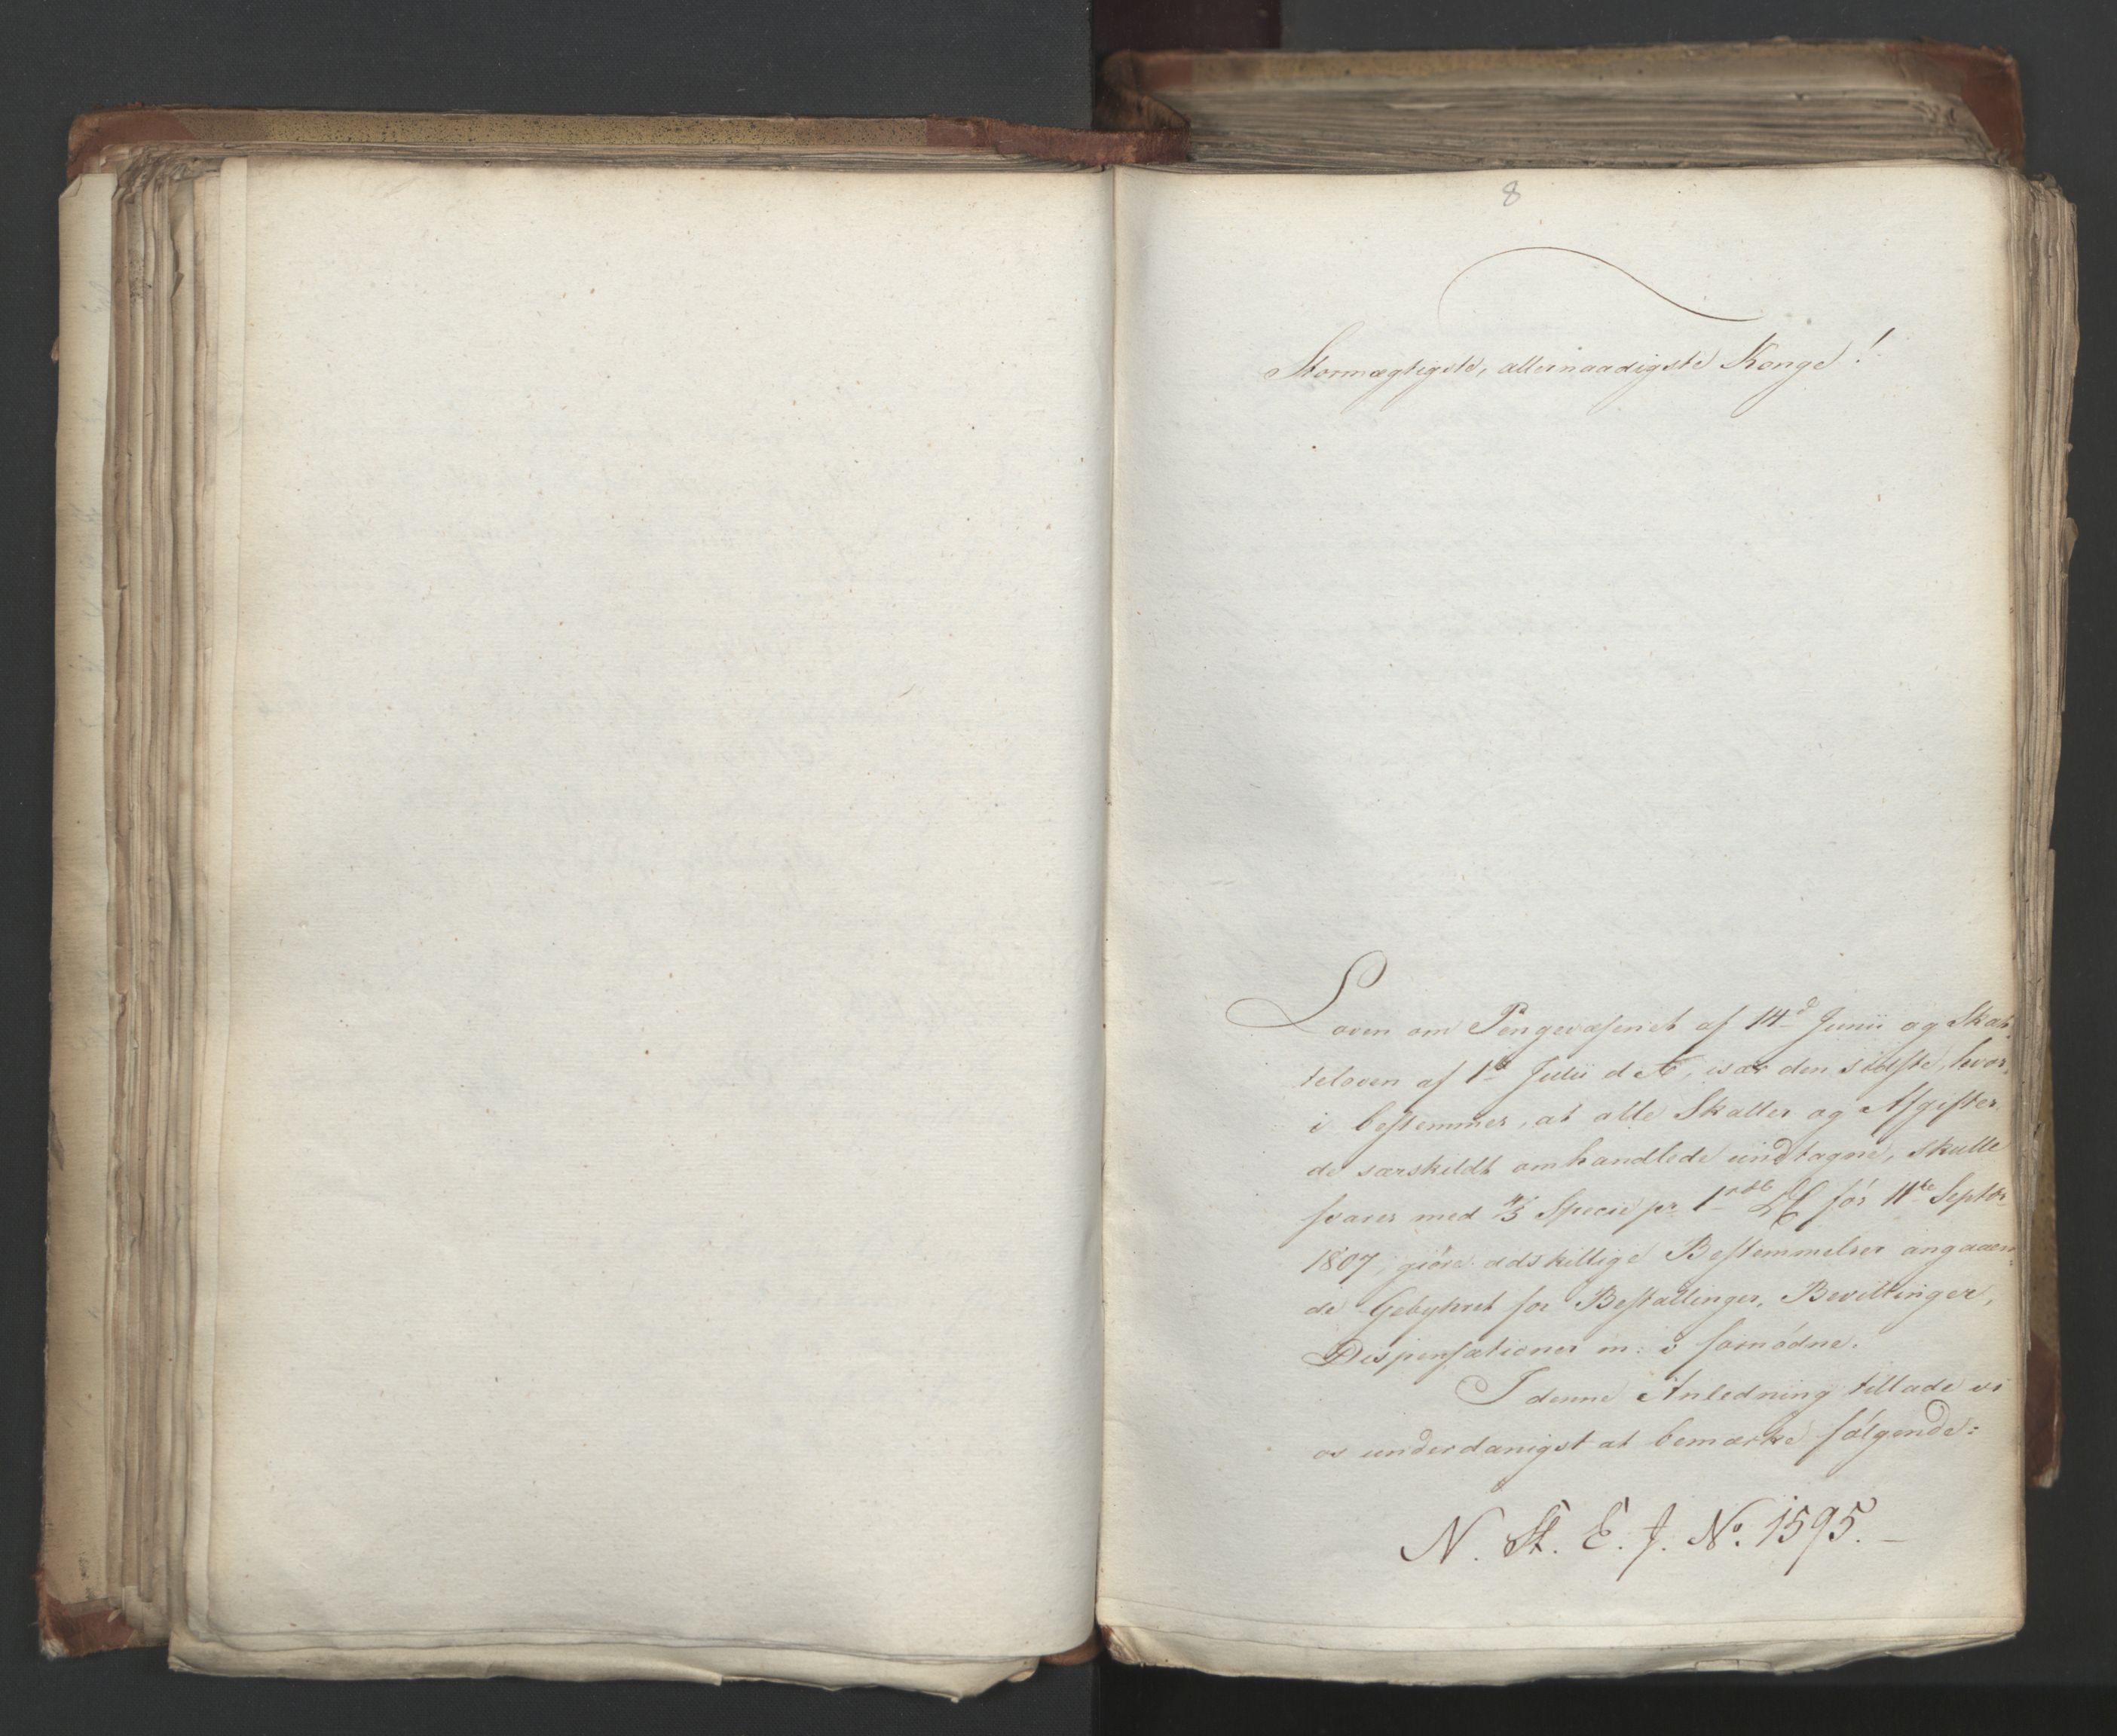 8
Stormægtigste, allernaadigste Konge!
Loven om Pengevæsenet af 14d Junii og Skat-
teloven af 1st Julii d. A., især den sidste, hvor-
i bestemmes, at alle Skatter og Afgifter
de særskildt omhandlede undtagne, skulle
svares med Specie pr 1 rdb DC før 11te Septbr
1807, giöre adskillige Bestemmelser angaaen-
de Gebyhret for Bestallinger, Bevillinger,
Dispensationer m: v: fornødne.
I denne Anledning tillade vi
os underdanigst at bemærke følgende:
N. St. E. J. No. 1595.